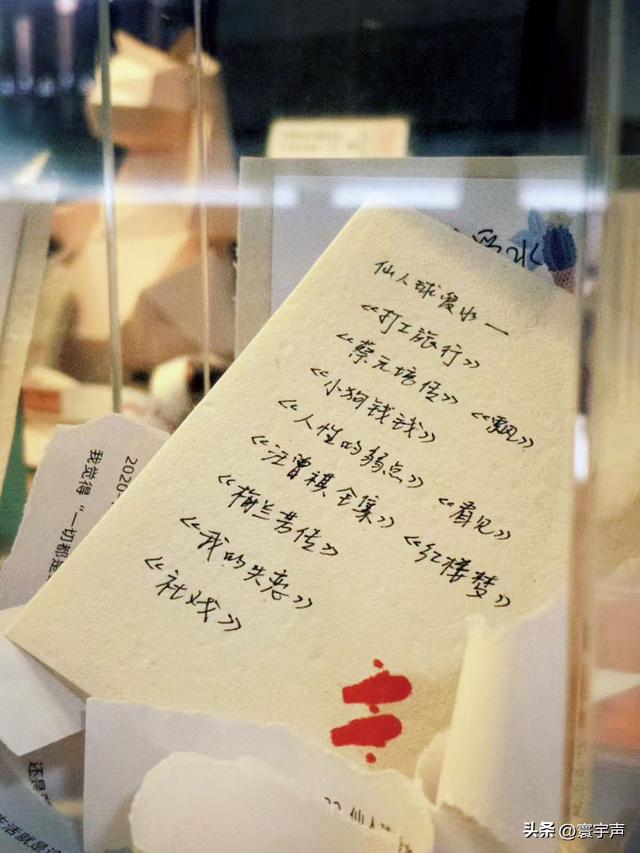 仙人球爱水一
《打工旅行》
《蔡元培传》 《飘》
《小狗钱钱》
《人性的弱点》 《看见》
《汪曾祺全集》 《红楼梦》
《梅兰芳传》
《我的失恋》
《社戏》
2020
我觉得“一切都是
还是
生活就是
仙人
头条 @寰宇声